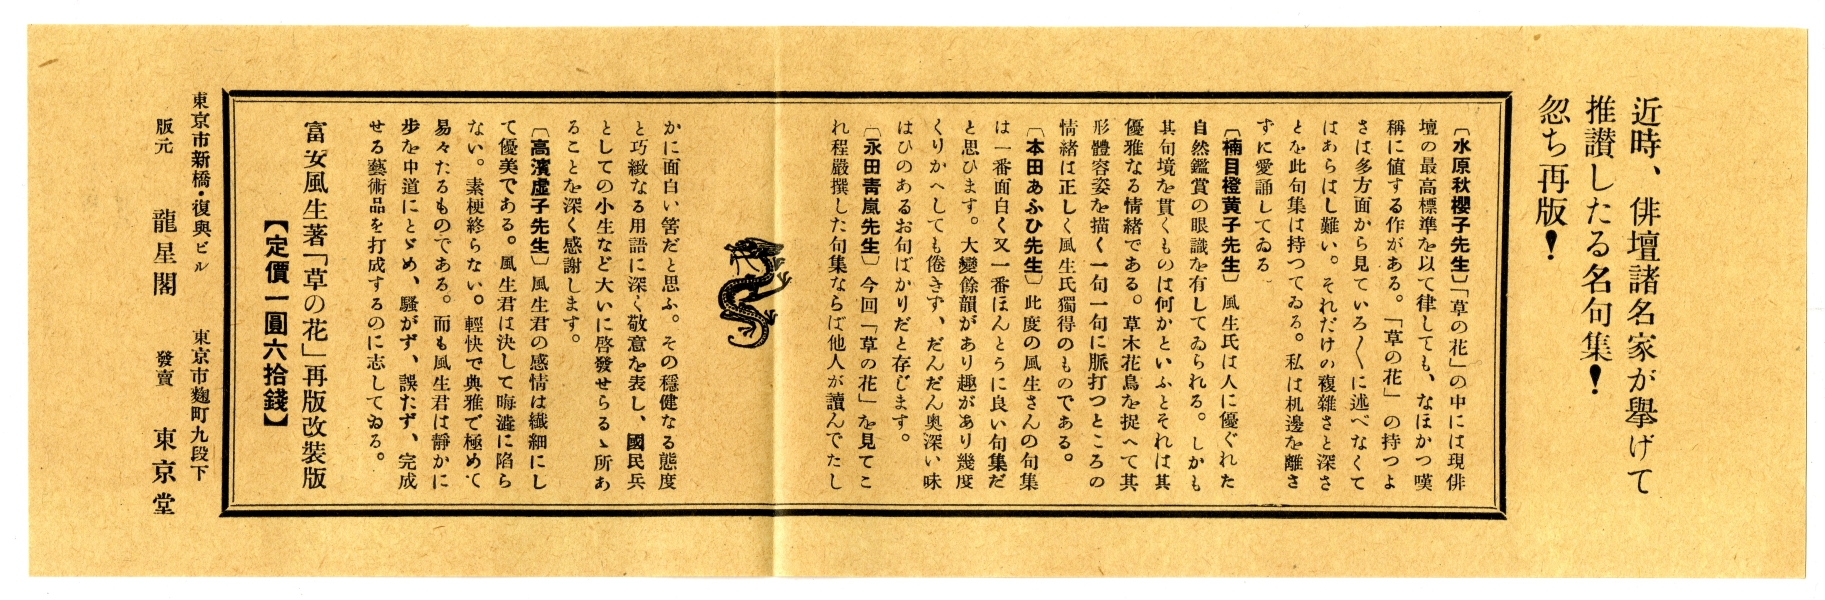 近時、俳壇諸名家が擧げて
推讃したる名句集！
忽ち再版！
〔水原秋櫻子先生〕「草の花」の中には現俳
壇の最高標準を以て律しても、なほかつ嘆
稱に値する作がある。「草の花」の持つよ
さは多方面から見ていろ〱に述べなくて
はあらはし難い。それだけの複雜さと深さ
とを此句集は持つてゐる。私は机邊を離さ
ずに愛誦してゐる
〔楠目橙黄子先生〕風生氏は人に優ぐれた
自然鑑賞の眼識を有してゐられる。しかも
其句境を貫くものは何かといふとそれは其
優雅なる情緒である。草木花鳥を捉へて其
形體容姿を描く一句一句に脈打つところの
情緒は正しく風生氏獨得のものである。
〔本田あふひ先生〕此度の風生さんの句集
は一番面白く又一番ほんとうに良い句集だ
と思ひます。大變餘韻があり趣があり幾度
くりかへしても倦きず、だんだん奥深い味
はひのあるお句ばかりだと存じます。
〔永田青嵐先生〕今回「草の花」を見てこ
れ程嚴撰した句集ならば他人が讀んでたし
かに面白い筈だと思ふ。その穩健なる態度
と巧緻なる用語に深く敬意を表し、國民兵
としての小生など大いに啓發せらるゝ所あ
ることを深く感謝します。
〔高濱虚子先生〕風生君の感情は纎細にし
て優美である。風生君は決して晦澁に陷ら
ない。素梗終らない。輕快で典雅で極めて
易々たるものである。而も風生君は靜かに
歩を中道にとゞめ、騷がず、誤たず、完成
せる藝術品を打成するのに志してゐる。
富安風生著「草の花」再版改裝版
【定價一圓六拾錢】
東京市新橋・復興ビル 東京市麴町九段下
版元 龍星閣 發賣 東京堂